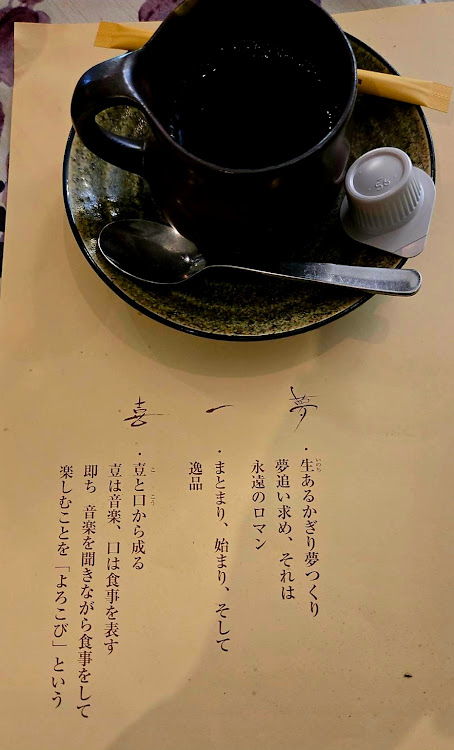 夢
・生あるかぎり夢つくり
いのち
夢追い求め、それは
永遠のロマン
一
・まとまり、始まり、そして
逸品
喜
・壴と口から成る
こ こう
壴は音楽、口は食事を表す
即ち 音楽を聞きながら食事をして
楽しむことを「よろこび」という